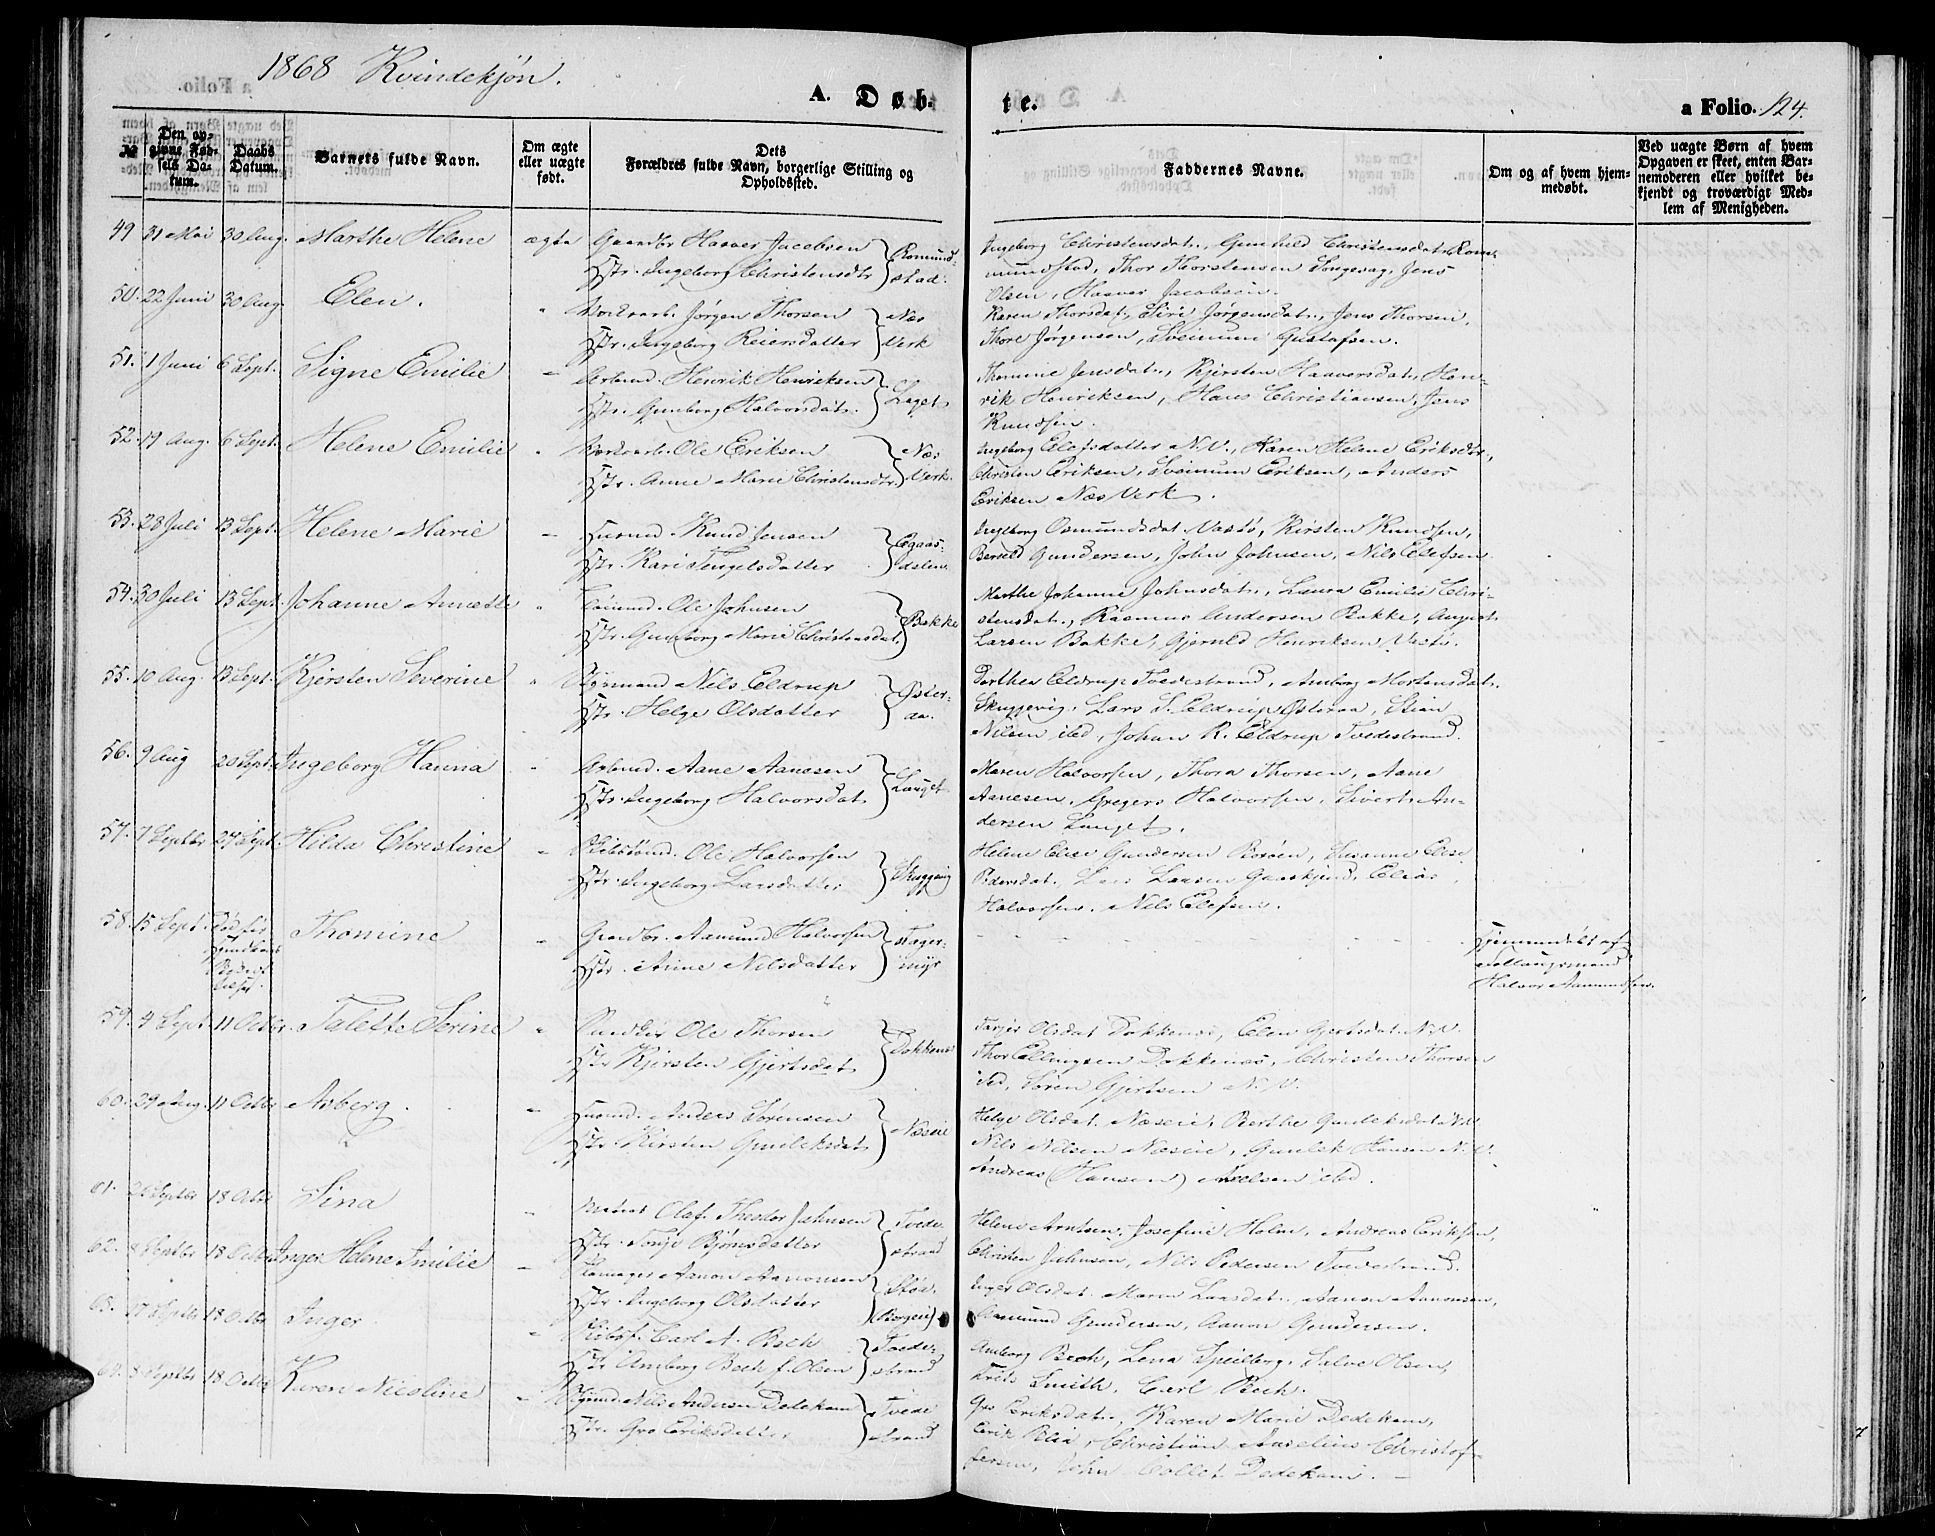 1868 Kvindekjøn.
A. Døb-
te.
a Folio. 124.
№
Den opgivne Fødsels Datum.
Daabs Datum.
Barnets fulde Navn.
Om ægte eller uægte født.
Dets Forældres fulde Navn, borgerlige Stilling og Opholdssted.
Faddernes Navne.
Om og af hvem hjemmedøbt.
Ved uægte Børn af hvem Opgaven er skeet, enten Barnemoderen eller hvilket bekjendt og troværdigt Medlem af Menigheden.
49 31 Mai 30 Aug. Marthe Helene ægte Gaardbr Haaver Jacobsen Romund-
Hstr. Ingeborg Christensdtr stad.
Ingeborg Christensdat., Gunhild Christensdat. Rom-
mundstad, Thor Thorstensen Songevaag, Jens
Olsen, Haaver Jacobsen.
50. 22 Juni 30 Aug. Elen. " Jørgen Thorsen Næs
Hstr. Ingeborg Reiersdatter Verk
Karen Thorsdat., Siri Jørgensdat., Jens Thorsen,
Thore Jørgensen, Sveinum Gustafsen.
51. 1 Juni 6 Sept. Signe Emilie " Arbmd. Henrik Henriksen
Hstr. Gunborg Halvorsdat. Laget
Thomine Jensdat., Kjersten Haaversdat., Hen-
rik Henriksen, Hans Christiansen, Jens
Knudsen.
52. 19 Aug. 6 Sept. Helene Emilie " Ole Eriksen Næs
Hstr. Anne Marie Christensdtr. Verk.
Ingeborg Elefsdatter N.V., Karen Helene Eriksdtr.,
Christen Eriksen, Sveinum Eriksen, Anders
Eriksen Næs Verk.
53. 28 Juli 13 Sept. Helene Marie " Husmd. Knud Jensen
Hstr. Kari Tengelsdatter
Ingeborg Osmundsdat. Vastø, Kirsten Knudsen,
Berteld Gundersen, John Johnsen, Nils Elefsen
54. 30 Juli 13 Sept. Johanne Annette " Ole Johnsen
Hstr. Gunborg Marie Christensdat. Bakke
Marthe Johanne Johnsdat., Laura Emilie Chri-
stensdat., Rasmus Andersen Bakke, August
Larsen Bakke, Gjeruld Henriksen Vastø.
55. 10 Aug. 13 Sept. Kjersten Severine " Nils Eldrup Øster-
Hstr. Helge Olsdatter aa.
Dorthea Eldrup Tvedestrand, Amborg Mortensdat.
Skuggevig, Lars S. Eldrup Østeraa, Stian
Nilsen ibd, Johan R. Eldrup Tvedestrand.
56. 9 Aug 20 Sept. Ingeborg Hanna " Arbmd. Aane Aanesen
Hstr. Ingeborg Halvorsdat. Lauget
Maren Halvorsen, Thora Thorsen, Aane
Aanesen, Gregers Halvorsen, Sivert An-
dersen Lauget.
57. 7 Septbr 27 Sept. Hilda Christine " Ole Halvorsen
Hstr. Ingeborg Larsdatter Skuggevig
Helene Elise Gundersen Borøen, Susanne Elise
Pedersdat., Lars Larsen Gaaskjend, Elias
Halvorsen, Nils Elefsen.
58. 15 Sept. Død før Thomine " Gaardbr. Aamund Halvorsen Fager-
Hstr. Anne Nilsdatter myr
Hjemmedøbt af
Halvor Aamundsen.
59. 4 Sept 11 Octbr. Talette Serine " Ole Thorsen
Hstr. Kjersten Gjertsdat. Dokkenæs
Tarjer Olsdat Dokkenæs, Elen Gjertsdat. N.V.
Thor Ellingsen Dokkenæs, Christen Thorsen
ibd, Søren Gjertsen N.V.
60. 29 Aug. 11 Octbr Asberg. " Husmd. Anders Sørensen
Hstr. Kirsten Gunleksdat. Næseie
Helge Olsdat. Næseie, Berthe Gunleksdat. N.V.
Nils Nilsen Næseie, Gunlek Hansen N.V.
Andreas (Hansen) Axelsen ibd.
61. Septbr 18 Octbr Sina " Matros Olaf Theodor Johnsen Tvede-
Hstr. Tonje Bjørnsdatter strand
Helene Arntsen, Josefine Holm, Andreas Eriksen,
Christen Johnsen, Nils Pedersen Tvedestrand.
62. 8 Septbr 18 Octbr Inger Helene Amilie " Aanon Aanonsen
Hstr. Ingeborg Olsdatter (Borgen)
Inger Olsdat. Maren Larsdat., Aanon Aanonsen,
Aamund Gundersen, Aanon Gundersen.
63. 17 Septbr 18 Octbr Inger " Skibsf. Carl A. Bech Tvede-
Hstr. Amborg Bech f. Olsen strand
Amborg Bech, Lena Speilberg, Salve Olsen,
Frits Smith, Carl Bech.
64. 8 Septbr 18 Octbr Karen Nicoline " Nils Andersen Dedekam Tvede
Hstr. Gro Eriksdatter strand
Gro Eriksdat., Karen Marie Dedekam,
Erik Blix, Christian Aurelius Christof-
fersen, John Collet Dedekam.